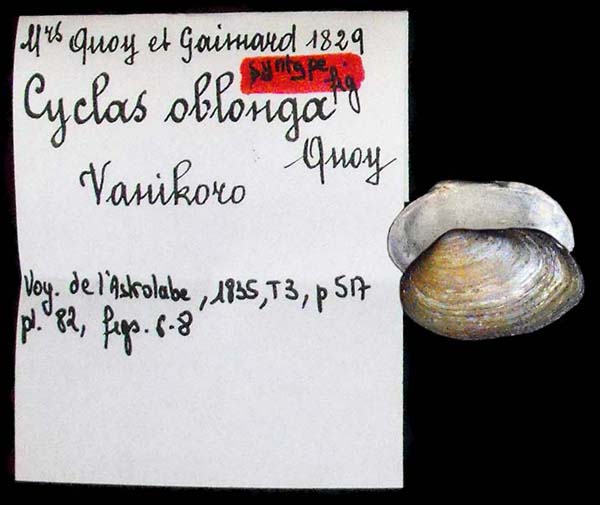 Mrs Quoy et Gaimard 1829
syntype
fig
Cyclas oblonga
Quoy
Vanikoro
Voy. de l'Astrolabe, 1835, T3, p 517
pl. 82, figs. 6-8